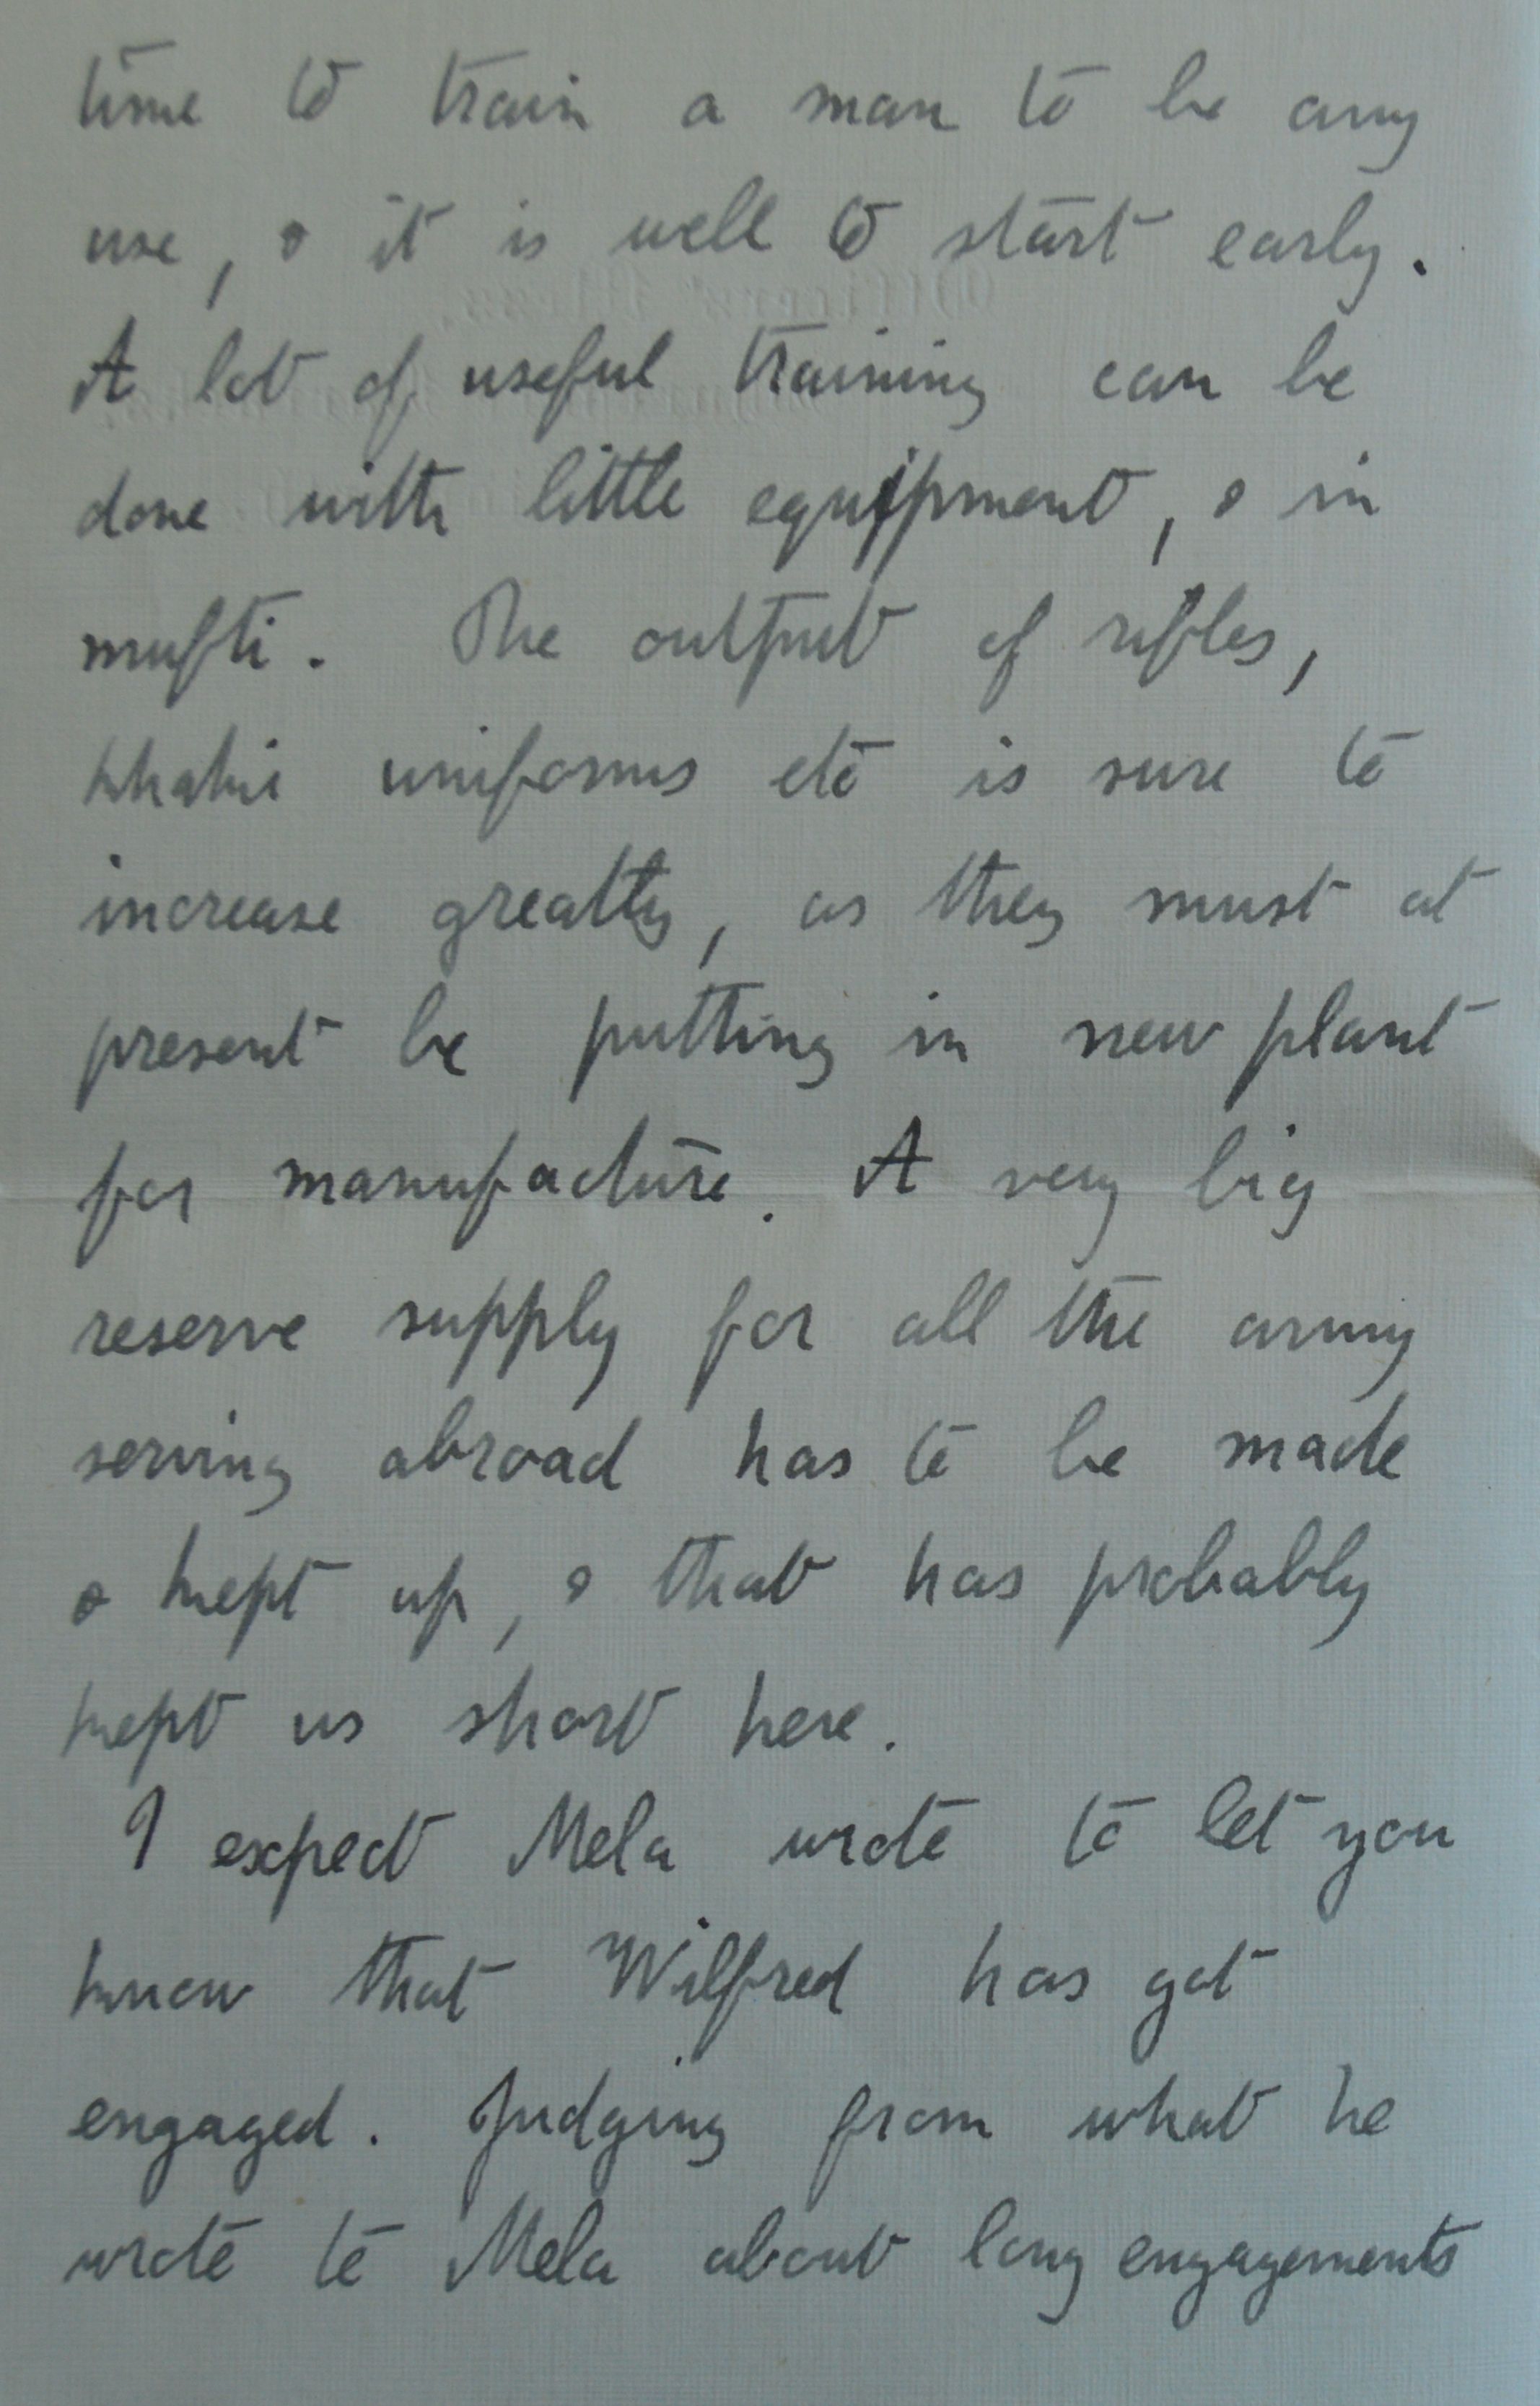 time to train a man to be any
use, & it is well to start early.
A lot of useful training can be
done with little equipment, & in
mufti. The output of rifles,
khakie uniforms etc is sure to
increase greatly, as they must at
present be putting in new plant
for manufacture. A very big
reserve supply for all the army
serving abroad has to be made
& kept up, & that has probably
kept us short here.
I expect Mela wrote to let you
know that Wilfred has got
engaged. Judging from what he
wrote to Mela about long engagements